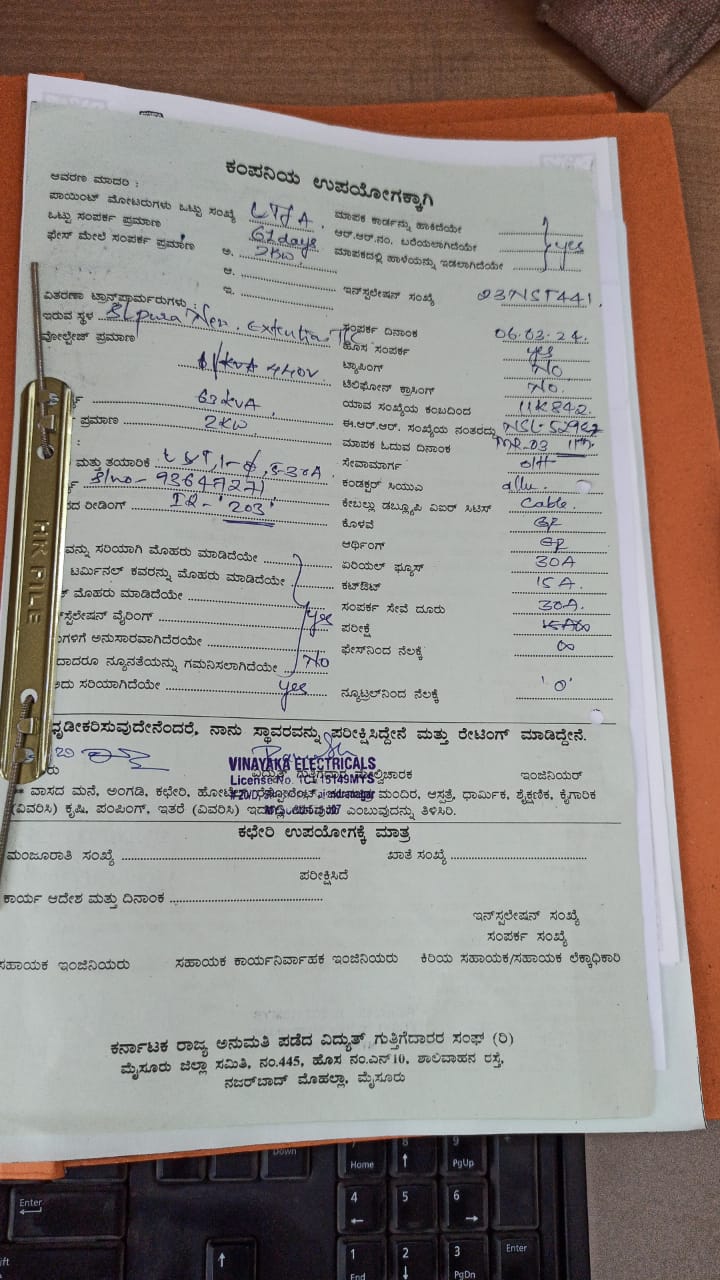 ಕಂಪನಿಯ ಉಪಯೋಗಕ್ಕಾಗಿ
ಆವರಣ ಮಾದರಿ :
ಪಾಯಿಂಟ್ ಮೋಟರುಗಳು ಒಟ್ಟು ಸಂಖ್ಯೆ
ಮಾಪಕ ಕಾರ್ಡನ್ನು ಹಾಕಿದೆಯೇ
ಒಟ್ಟು ಸಂಪರ್ಕ ಪ್ರಮಾಣ 67days
ಆರ್.ಆರ್.ನಂ. ಬರೆಯಲಾಗಿದೆಯೇ yes
ಫೇಸ್ ಮೇಲೆ ಸಂಪರ್ಕ ಪ್ರಮಾಣ ಅ. 2KW
ಮಾಪಕದಲ್ಲಿ ಹಾಳೆಯನ್ನು ಇಡಲಾಗಿದೆಯೇ
ಆ.
ಇ.
ಇನ್‌ಸ್ಟಲೇಷನ್ ಸಂಖ್ಯೆ 23NST441.
ವಿತರಣಾ ಟ್ರಾನ್ಸ್‌ಫಾರ್ಮರುಗಳು :
ಇರುವ ಸ್ಥಳ
ಸಂಪರ್ಕ ದಿನಾಂಕ 06.03.24.
ವೋಲ್ಟೇಜ್ ಪ್ರಮಾಣ 440V
ಹೊಸ ಸಂಪರ್ಕ yes
ಟ್ಯಾಪಿಂಗ್ NO
ಟೆಲಿಫೋನ್ ಕ್ರಾಸಿಂಗ್ NO.
63KVA
ಯಾವ ಸಂಖ್ಯೆಯ ಕಂಬದಿಂದ 11K842.
ಪ್ರಮಾಣ 2KW
ಈ.ಆರ್.ಆರ್. ಸಂಖ್ಯೆಯ ನಂತರದ್ದು
ಮಾಪಕ ಓದುವ ದಿನಾಂಕ MR-03 11th
ಮತ್ತು ತಯಾರಿಕೆ L&T, 1-ф, 5-30A
ಸೇವಾಮಾರ್ಗ O/H
Slno- 93647271
ಕಂಡಕ್ಟರ್ ಸಿಯುಎ
ದ ರೀಡಿಂಗ್ IR- '203'
ಕೇಬಲ್ಲು ಡಬ್ಲ್ಯೂಪಿ ಎಐರ್ ಸಿಟಿಸ್ Cable.
ಕೊಳವೆ GP
ಆರ್ಥಿಂಗ್ GP
ವನ್ನು ಸರಿಯಾಗಿ ಮೊಹರು ಮಾಡಿದೆಯೇ
ಏರಿಯಲ್ ಫ್ಯೂಸ್ 30A
ಟರ್ಮಿನಲ್ ಕವರನ್ನು ಮೊಹರು ಮಾಡಿದೆಯೇ
ಕಟ್‌ಔಟ್ 15A.
ಮೊಹರು ಮಾಡಿದೆಯೇ
ಸಂಪರ್ಕ ಸೇವೆ ದೂರು 30A.
ಸ್ಟೆಲೇಷನ್ ವೈರಿಂಗ್ yes
ಪರೀಕ್ಷೆ
ಗಳಿಗೆ ಅನುಸಾರವಾಗಿದೆರಯೇ
ಫೇಸ್‌ನಿಂದ ನೆಲಕ್ಕೆ ∞
ದಾದರೂ ನ್ಯೂನತೆಯನ್ನು ಗಮನಿಸಲಾಗಿದೆಯೇ No
ಅದು ಸರಿಯಾಗಿದೆಯೇ yes
ನ್ಯೂಟ್ರಲ್‌ನಿಂದ ನೆಲಕ್ಕೆ '0'
ದೃಢೀಕರಿಸುವುದೇನೆಂದರೆ, ನಾನು ಸ್ಥಾವರವನ್ನು ಪರೀಕ್ಷಿಸಿದ್ದೇನೆ ಮತ್ತು ರೇಟಿಂಗ್ ಮಾಡಿದ್ದೇನೆ.
VINAYAKA ELECTRICALS
ವಿದ್ಯುತ್ ಗುತ್ತಿಗೆದಾರ ಮೇಲ್ವಿಚಾರಕ
ಇಂಜಿನಿಯರ್
License No. 1CL 15149MYS
ವಾಸದ ಮನೆ, ಅಂಗಡಿ, ಕಛೇರಿ, ಹೋಟೇಲ್ ಮಂದಿರ, ಆಸ್ಪತ್ರೆ, ಧಾರ್ಮಿಕ, ಶೈಕ್ಷಣಿಕ, ಕೈಗಾರಿಕ
(ವಿವರಿಸಿ) ಕೃಷಿ, ಪಂಪಿಂಗ್, ಇತರೆ (ವಿವರಿಸಿ) ಎಂಬುವುದನ್ನು ತಿಳಿಸಿರಿ.
ಕಛೇರಿ ಉಪಯೋಗಕ್ಕೆ ಮಾತ್ರ
ಮಂಜೂರಾತಿ ಸಂಖ್ಯೆ
ಖಾತೆ ಸಂಖ್ಯೆ
ಪರೀಕ್ಷಿಸಿದೆ
ಕಾರ್ಯ ಆದೇಶ ಮತ್ತು ದಿನಾಂಕ
ಇನ್‌ಸ್ಟಲೇಷನ್ ಸಂಖ್ಯೆ
ಸಂಪರ್ಕ ಸಂಖ್ಯೆ
ಸಹಾಯಕ ಇಂಜಿನಿಯರು
ಸಹಾಯಕ ಕಾರ್ಯನಿರ್ವಾಹಕ ಇಂಜಿನಿಯರು
ಕಿರಿಯ ಸಹಾಯಕ/ಸಹಾಯಕ ಲೆಕ್ಕಾಧಿಕಾರಿ
ಕರ್ನಾಟಕ ರಾಜ್ಯ ಅನುಮತಿ ಪಡೆದ ವಿದ್ಯುತ್ ಗುತ್ತಿಗೆದಾರರ ಸಂಘ (ರಿ)
ಮೈಸೂರು ಜಿಲ್ಲಾ ಸಮಿತಿ, ನಂ.445, ಹೊಸ ನಂ.ಎನ್10, ಶಾಲಿವಾಹನ ರಸ್ತೆ,
ನಜರ್‌ಬಾದ್ ಮೊಹಲ್ಲಾ, ಮೈಸೂರು
HK FILE
Down
Home
8
9
PgUp
Enter
4
5
6
1
2
3
End
PgDn
Enter